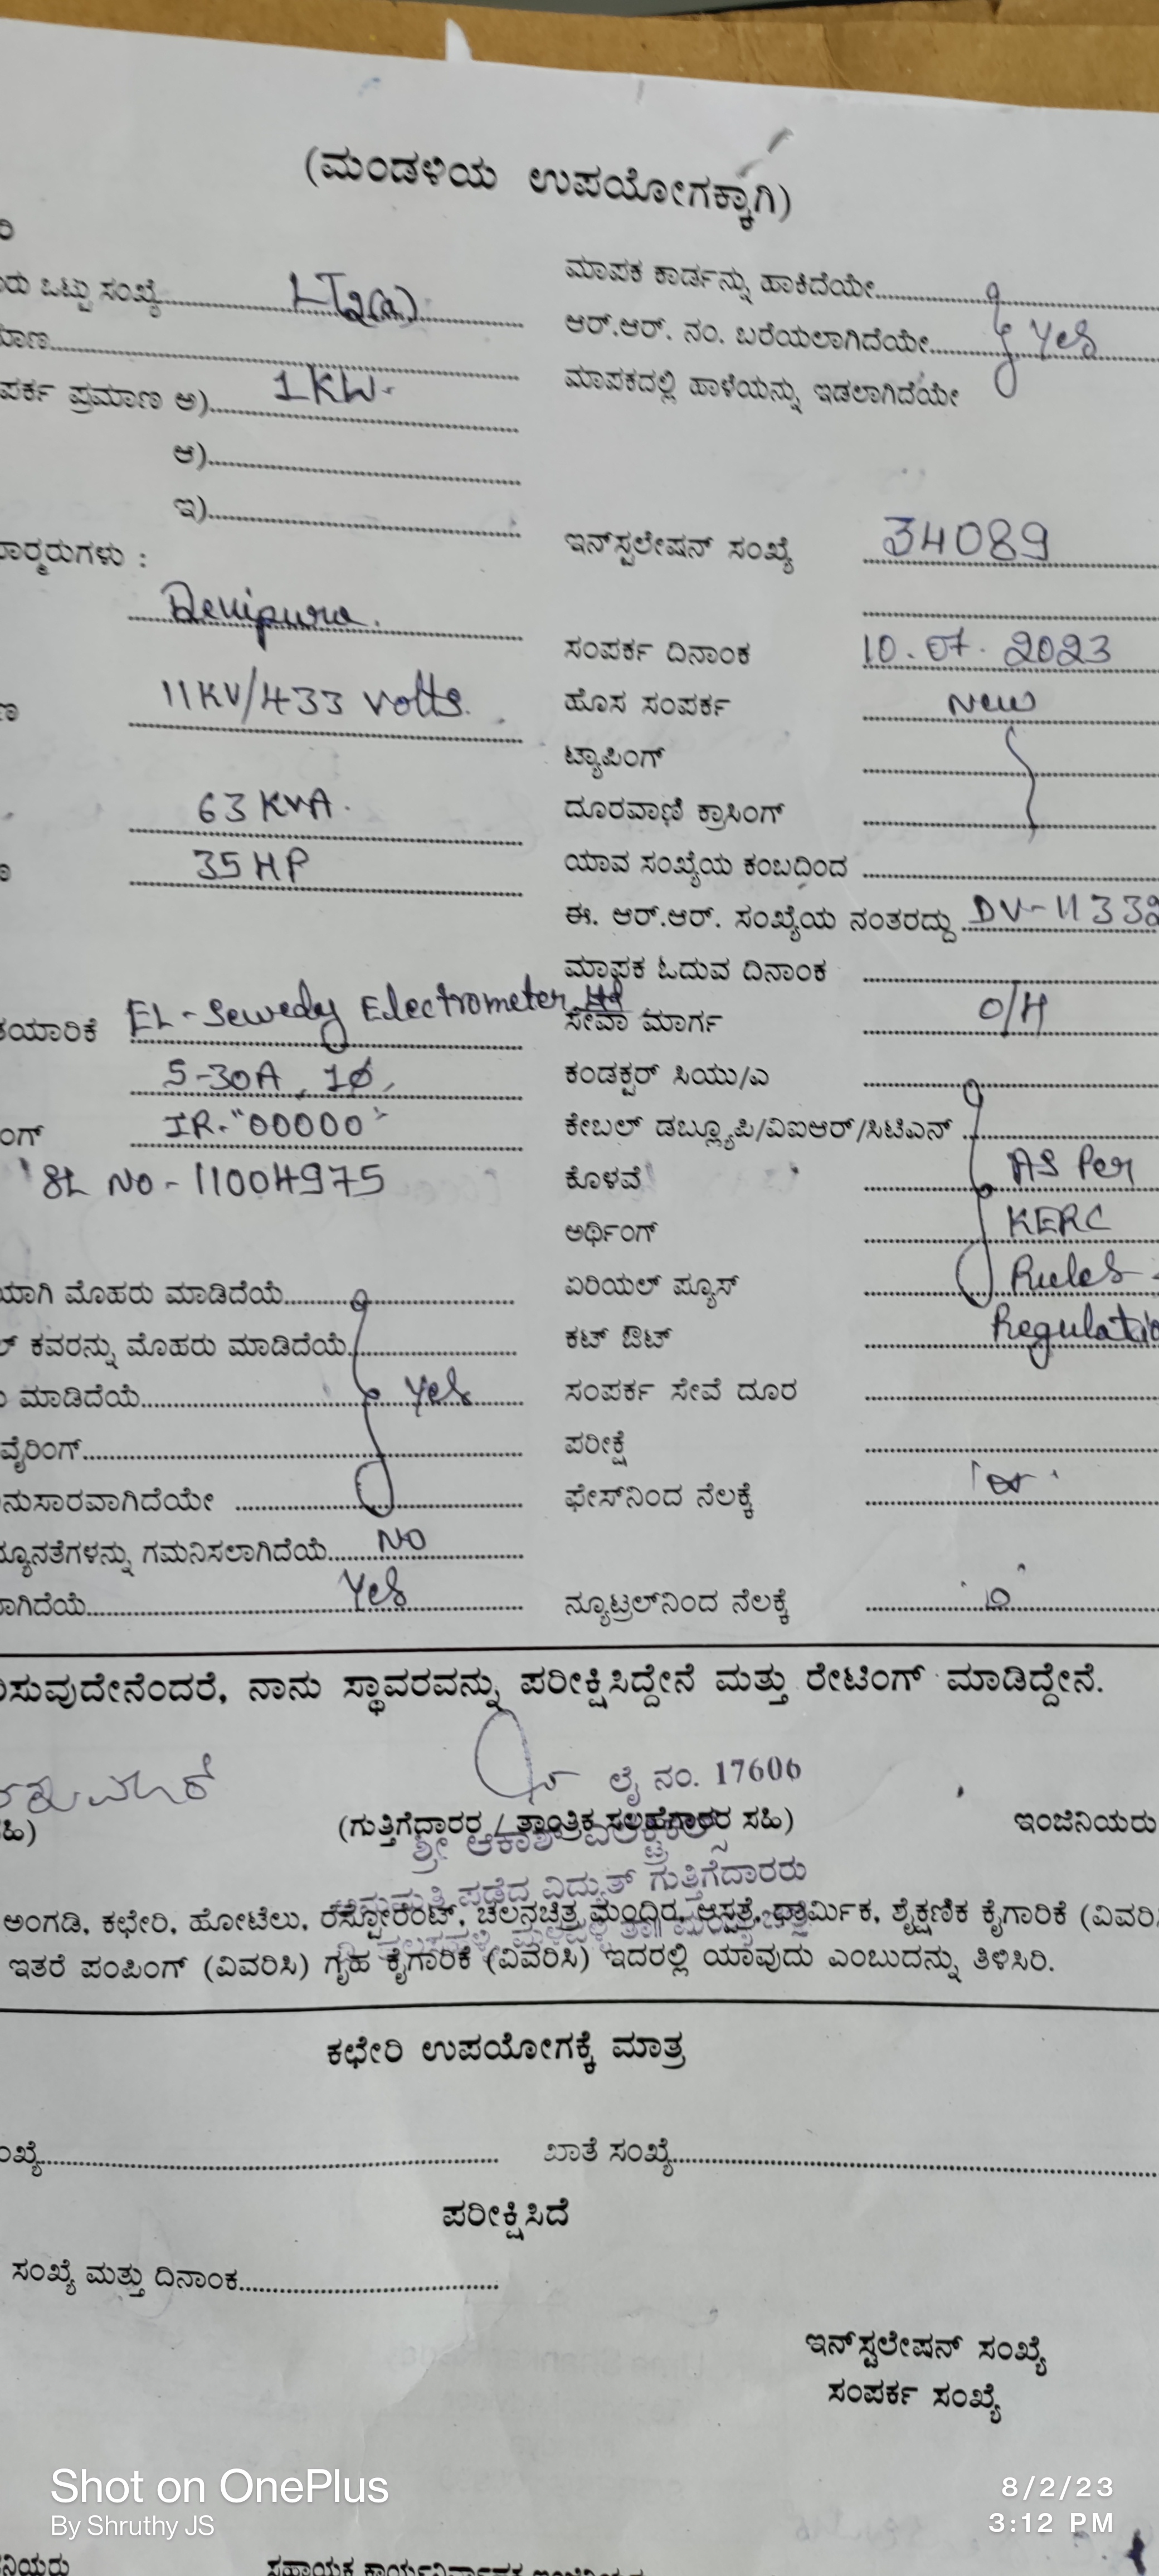 (ಮಂಡಳಿಯ ಉಪಯೋಗಕ್ಕಾಗಿ)
ರಿ
ರು ಒಟ್ಟು ಸಂಖ್ಯೆ LT2(a)
ಮಾಣ
ಪರ್ಕ ಪ್ರಮಾಣ ಅ) 1KW-
ಆ)
ಇ)
ಾರ್ಮರುಗಳು :
11KV/433 volts.
63 KVA.
35 HP
ತಯಾರಿಕೆ EL-Sewedy Electrometer
5-30A, 1Ø,
ಂಗ್ IR-"00000"
SL NO-11004975
ಯಾಗಿ ಮೊಹರು ಮಾಡಿದೆಯೆ
ಲ್ ಕವರನ್ನು ಮೊಹರು ಮಾಡಿದೆಯೆ
ು ಮಾಡಿದೆಯೆ Yes
ವೈರಿಂಗ್
ನುಸಾರವಾಗಿದೆಯೇ
ನ್ಯೂನತೆಗಳನ್ನು ಗಮನಿಸಲಾಗಿದೆಯೆ NO
ಾಗಿದೆಯೆ Yes
ಮಾಪಕ ಕಾರ್ಡನ್ನು ಹಾಕಿದೆಯೇ
ಆರ್.ಆರ್. ನಂ. ಬರೆಯಲಾಗಿದೆಯೇ Yes
ಮಾಪಕದಲ್ಲಿ ಹಾಳೆಯನ್ನು ಇಡಲಾಗಿದೆಯೇ
ಇನ್‌ಸ್ಪಲೇಷನ್ ಸಂಖ್ಯೆ 34089
ಸಂಪರ್ಕ ದಿನಾಂಕ 10.07.2023
ಹೊಸ ಸಂಪರ್ಕ New
ಟ್ಯಾಪಿಂಗ್
ದೂರವಾಣಿ ಕ್ರಾಸಿಂಗ್
ಯಾವ ಸಂಖ್ಯೆಯ ಕಂಬದಿಂದ
ಈ. ಆರ್.ಆರ್. ಸಂಖ್ಯೆಯ ನಂತರದ್ದು DV-1133
ಮಾಪಕ ಓದುವ ದಿನಾಂಕ
ಸೇವಾ ಮಾರ್ಗ O/H
ಕಂಡಕ್ಟರ್ ಸಿಯು/ಎ
ಕೇಬಲ್ ಡಬ್ಲ್ಯೂಪಿ/ವಿಐಆರ್/ಸಿಟಿಎನ್
ಕೊಳವೆ AS Per
ಅರ್ಥಿಂಗ್ KERC
ಏರಿಯಲ್ ಪ್ಯೂಸ್ Rules
ಕಟ್ ಔಟ್ Regulatio
ಸಂಪರ್ಕ ಸೇವೆ ದೂರ
ಪರೀಕ್ಷೆ
ಫೇಸ್‌ನಿಂದ ನೆಲಕ್ಕೆ
ನ್ಯೂಟ್ರಲ್‌ನಿಂದ ನೆಲಕ್ಕೆ
ರಿಸುವುದೇನೆಂದರೆ, ನಾನು ಸ್ಥಾವರವನ್ನು ಪರೀಕ್ಷಿಸಿದ್ದೇನೆ ಮತ್ತು ರೇಟಿಂಗ್ ಮಾಡಿದ್ದೇನೆ.
ಲೈ ನಂ. 17606
ಹಿ) (ಗುತ್ತಿಗೆದಾರರ / ತಾಂತ್ರಿಕ ಸಲಹೆಗಾರರ ಸಹಿ) ಇಂಜಿನಿಯರು
ಶ್ರೀ ಆಕಾಶ್ ಎಲೆಕ್ಟ್ರಿಕಲ್ಸ್
ಅನುಮತಿ ಪಡೆದ ವಿದ್ಯುತ್ ಗುತ್ತಿಗೆದಾರರು
ಅಂಗಡಿ, ಕಛೇರಿ, ಹೋಟೆಲು, ರೆಸ್ಟೋರೆಂಟ್, ಚಲನಚಿತ್ರ ಮಂದಿರ, ಆಸ್ಪತ್ರೆ, ಧಾರ್ಮಿಕ, ಶೈಕ್ಷಣಿಕ ಕೈಗಾರಿಕೆ (ವಿವರಿ
ಇತರೆ ಪಂಪಿಂಗ್ (ವಿವರಿಸಿ) ಗೃಹ ಕೈಗಾರಿಕೆ (ವಿವರಿಸಿ) ಇದರಲ್ಲಿ ಯಾವುದು ಎಂಬುದನ್ನು ತಿಳಿಸಿರಿ.
ಕಛೇರಿ ಉಪಯೋಗಕ್ಕೆ ಮಾತ್ರ
ಂಖ್ಯೆ ಖಾತೆ ಸಂಖ್ಯೆ
ಪರೀಕ್ಷಿಸಿದೆ
ಸಂಖ್ಯೆ ಮತ್ತು ದಿನಾಂಕ
ಇನ್‌ಸ್ಟಲೇಷನ್ ಸಂಖ್ಯೆ
ಸಂಪರ್ಕ ಸಂಖ್ಯೆ
Shot on OnePlus
By Shruthy JS
8/2/23
3:12 PM